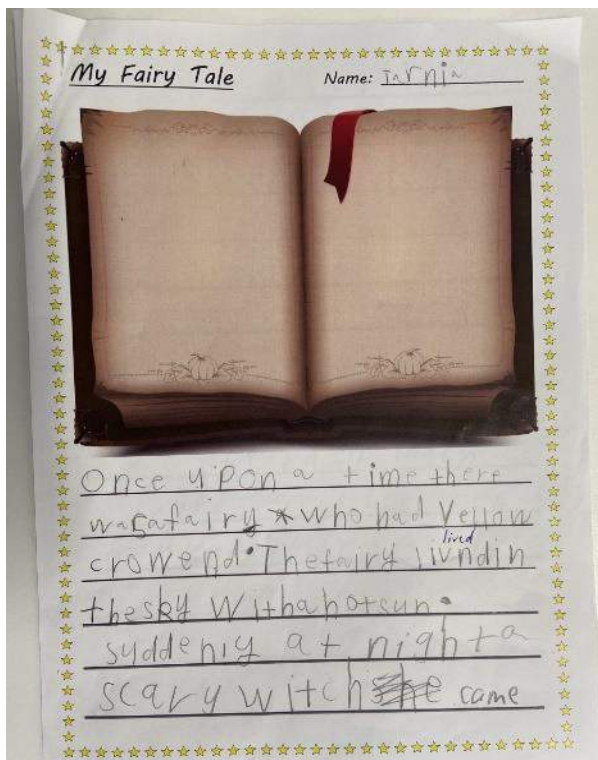 My Fairy Tale Name: Tarnia
Once upon a time there
was a fairy who had Yellow
crowend. The fairy livndin
lived
the sky With a hot sun.
suddenly at night a
scary witch came